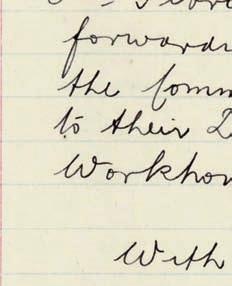 forwardi
the Comm
to their
Workhou
With